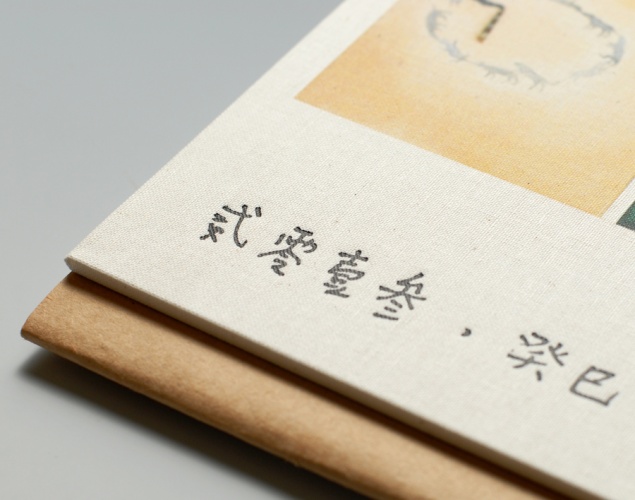 贰零壹叁，癸巳